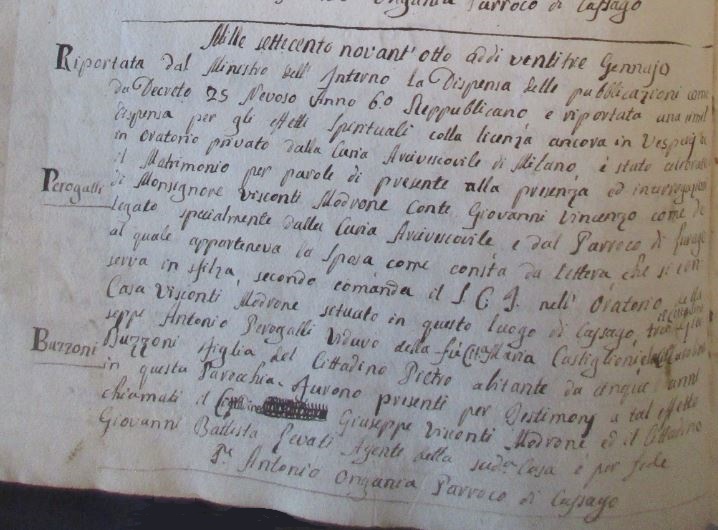 Ongania Parroco di Cassago
Mille settecento novant'otto addi ventitre Gennajo
Riportata dal Ministro dell'Interno la Dispensa delle pubblicazioni come
da Decreto 25 Nevoso Anno 6.o Reppublicano, e riportata una simil
dispensa per gli effetti Spirituali colla licenza ancora in Vesperis
in oratorio privato dalla Curia Arcivescovile di Milano, è stato celebrato
il Matrimonio per parole di presente alla presenza ed interrogazione
Perogalli
di Monsignore Visconti Modrone Conte Giovanni Vincenzo come de
legato specialmente dalla Curia Arcivescovile e dal Parroco di
al quale apparteneva la Sposa come consta da Lettera che si con
serva in sfilza, secondo comanda il S. C. T. nell'Oratorio della
Casa Visconti Modrone situato in questo luogo di Cassago, tra il Cittadino
seppe Antonio Perogalli Viduvo della fù Citt.a Maria Castiglioni
Buzzoni
Buzzoni figlia del Cittadino Pietro abitante da cinque anni
in questa Parocchia. furono presenti per Testimonj a tal effetto
chiamati il Cittadino Giuseppe Visconti Modrone ed il Cittadino
Giovanni Battista Agente della sud.a Casa e per fede
P. Antonio Ongania Parroco di Cassago